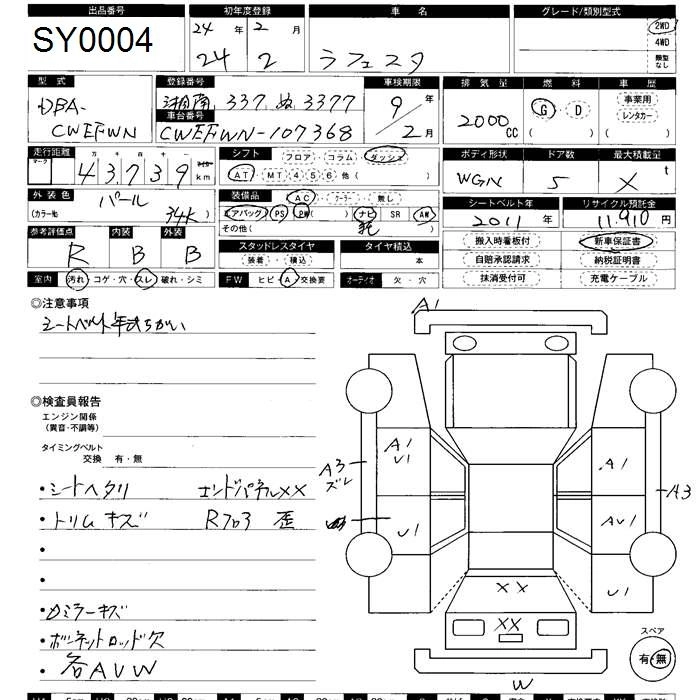 出品番号 初年度登録 車名 グレード/類別型式
SY0004 24年 2月 2WD
24 2 ラフェスタ 4WD
類型なし
型式 登録番号 車検期限 排気量 燃料 車歴
DBA- 湘南 337 ぬ 3377 9年 事業用
車台番号 2000CC G・D レンタカー
CWEFWN CWEFWN-107368 2月 ( ) ( )
走行距離 シフト フロア・コラム・ダッシュ ボディ形状 ドア数 最大積載量
マーク 十 万 千 百 十 一 マイル
43739 km AT・MT 4 5 6 他( ) WGN 5 X t
外装色 パール 装備品 AC・クーラー・無し シートベルト年式 リサイクル預託金
(カラー№ 34K) エアバック PS PW( ) ナビ SR AW 2011年 11.910円
評価点 参考 内装 外装 その他( 純 )
R B B スタッドレスタイヤ タイヤ積込 搬入時看板付 新車保証書
装着・積込 本 自賠承認請求 納税証明書
室内 汚れ・コゲ・穴・スレ・破れ・シミ FW ヒビ・A・交換要 オーディオ 欠・穴 抹消受付可 充電ケーブル
◎注意事項
シートベルト年式ちがい
◎検査員報告
エンジン関係
(異音・不調等)
タイミングベルト
交換 有・無
・シートヘタリ エンドパネルXX
・トリムキズ Rフロ3 歪
・
・
・カミラーキズ
・ボンネットロッド欠
・各AUW
A1
A1
U1
A3
ズレ
U1
A1
A3
AU1
U1
XX
XX
W
スペア
有・無